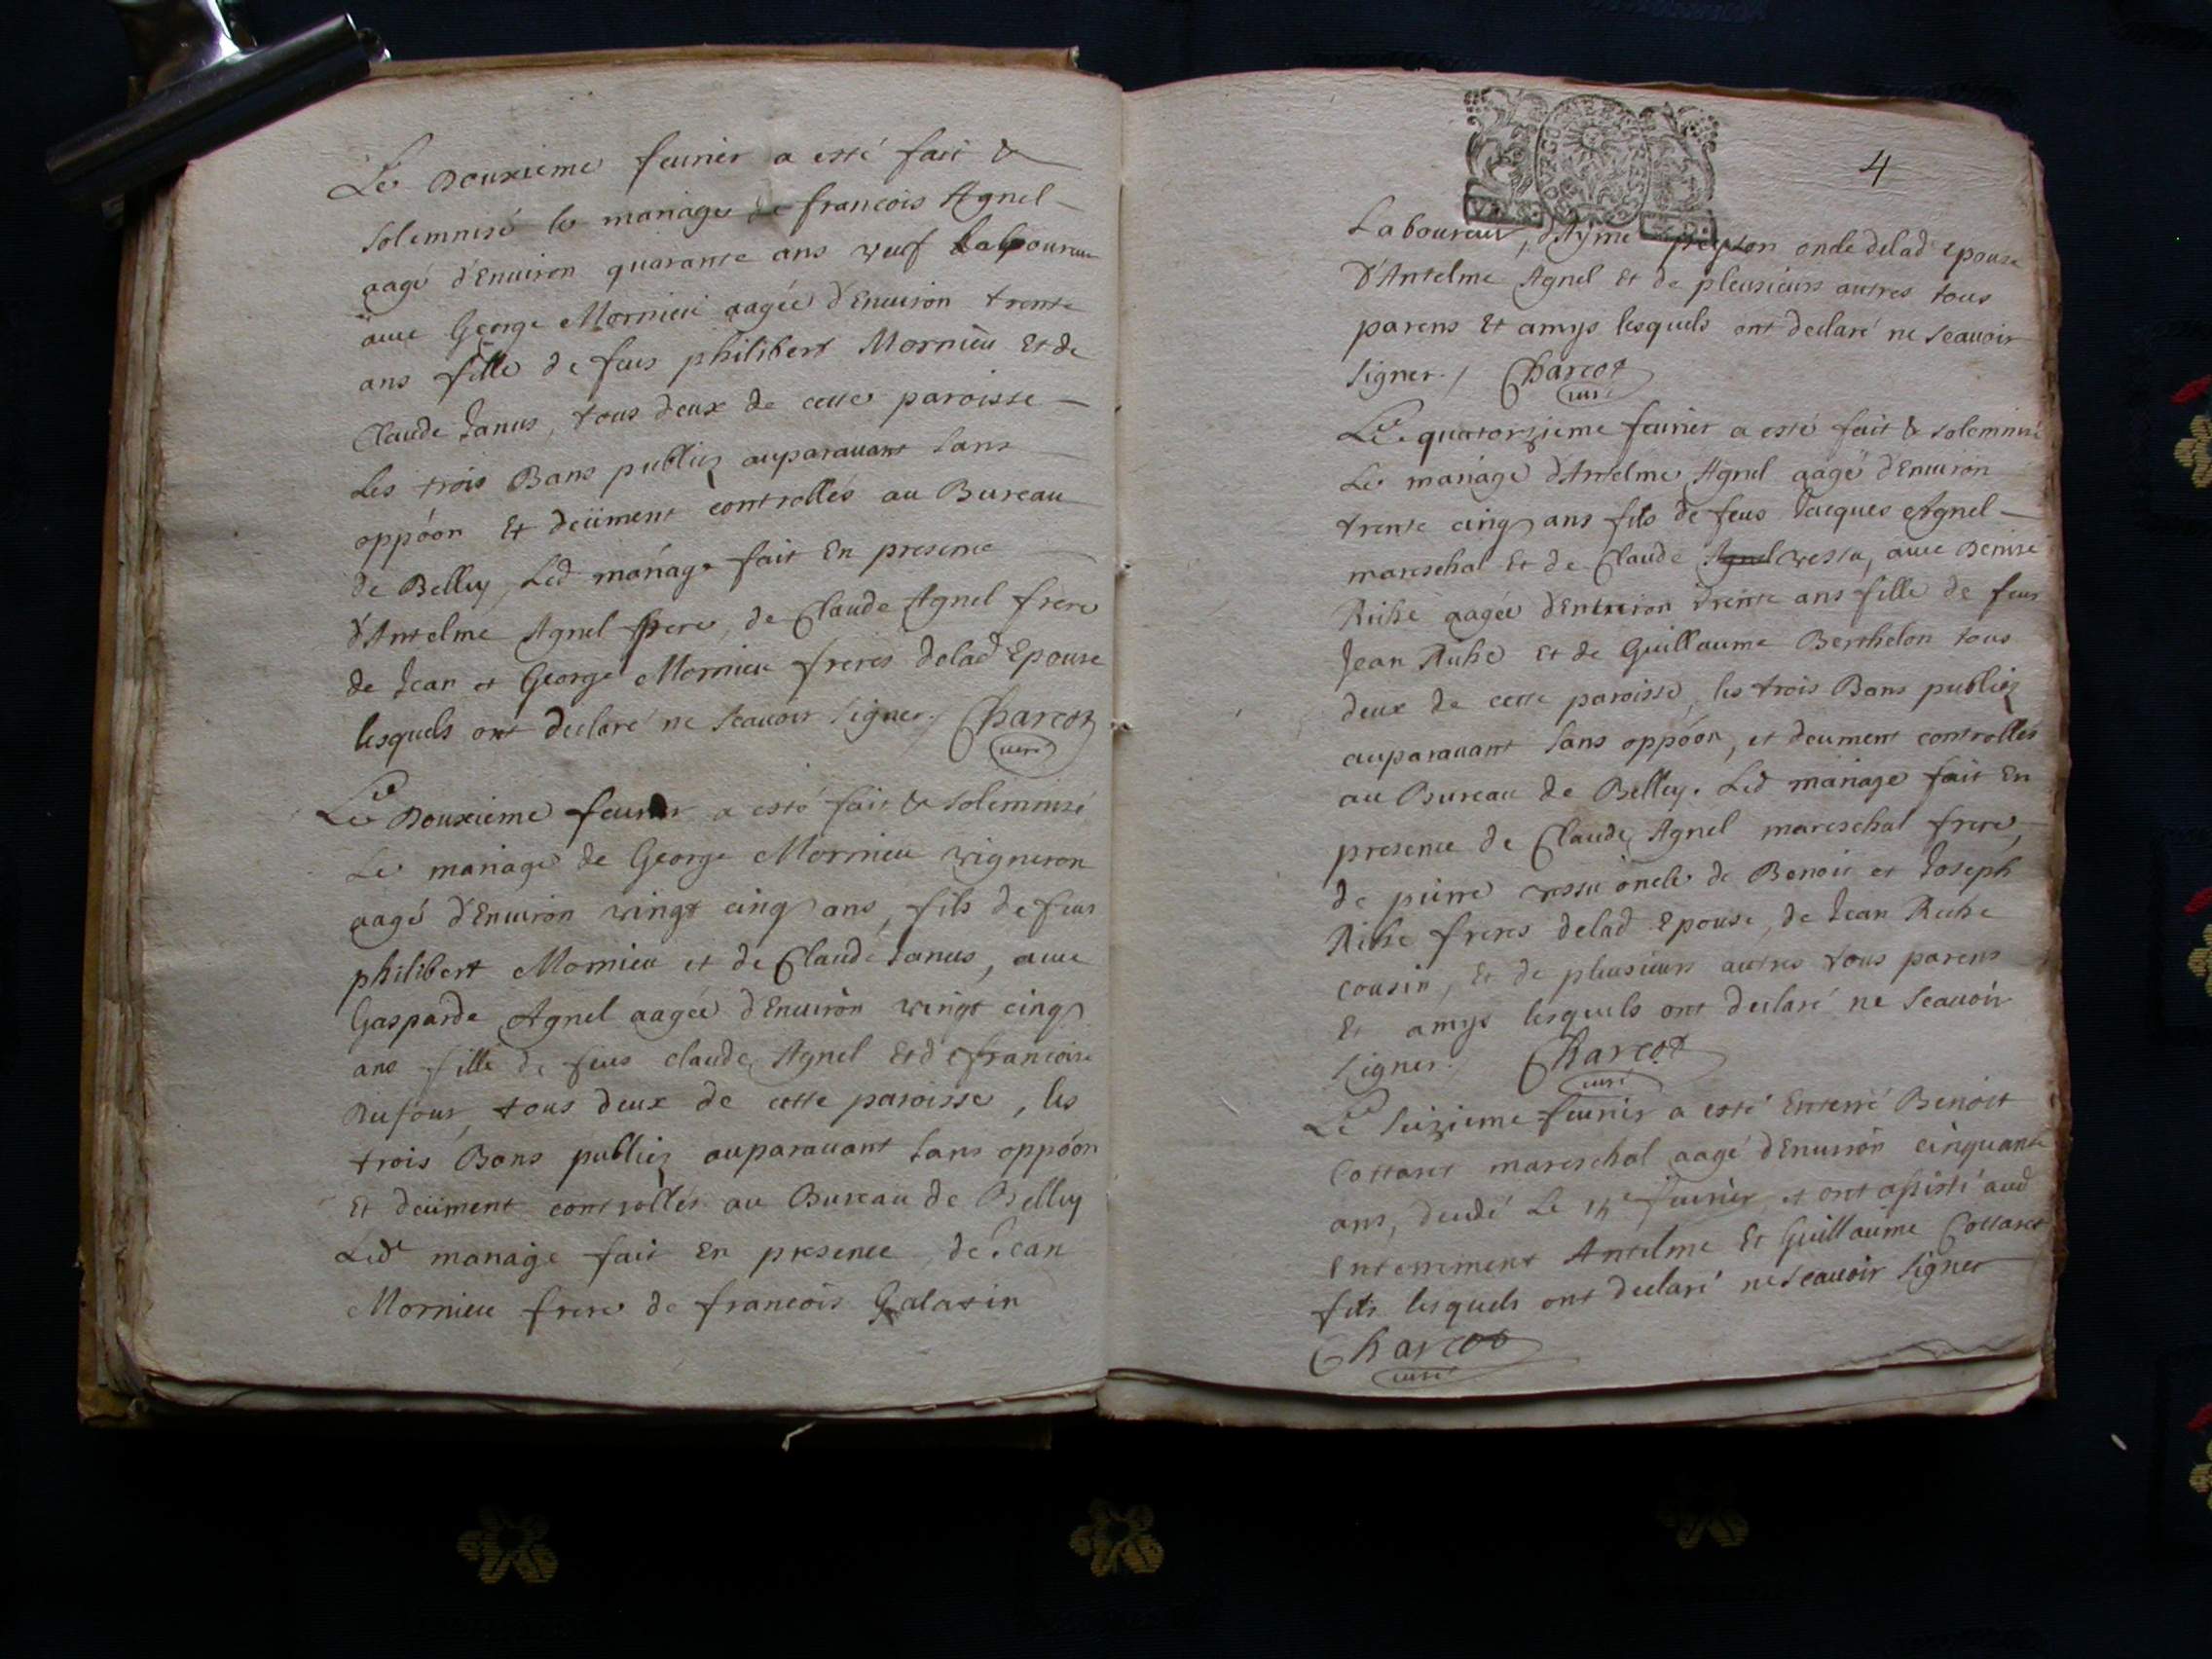 Le Douxieme feurier a esté fait &
solemnisé le mariage de francois Agnel
aagé d'Enuiron quarante ans veuf Laboureur
auec George Mornieu aagée d'Enuiron trente
ans fille de feus philibert Mornieu Et de
Claude Janus, tous deux de cette paroisse
Les trois Bans publiez auparauant sans
oppóon Et deüment controllés au Bureau
de Belley, Led mariage fait En presence
d'Antelme Agnel frere, de Claude Agnel frere
de Jean et George Mornieu freres delad Epouse
lesquels ont declaré ne scauoir signer./ Charcot
curé
Le Douxieme feurier a esté fait & solemnisé
Le mariage de George Mornieu vigneron
aagé d'Enuiron vingt cinq ans, fils de feus
philibert Mornieu et de Claude Janus, auec
Gasparde Agnel aagée d'Enuiron vingt cinq
ans fille de feus claude Agnel Et de francoise
Dufour, tous deux de cette paroisse, les
trois Bans publiez auparauant sans oppóon
Et deüment controllés au Bureau de Belley
Led mariage fait En presence de Jean
Mornieu frere de francois Galatin
4
Laboureur, d'Ayme oncle delad Epouse
d'Antelme Agnel Et de pleusieurs autres tous
parens Et amys lesquels ont declaré ne scauoir
signer./ Charcot
curé
Le quatorzieme feurier a esté fait & solemnisé
Le mariage d'Antelme Agnel aagé d'Enuiron
trente cinq ans fils de feus Jacques Agnel
mareschal Et de Claude Agnel vessu, auec Denise
Ruhe aagée d'Enuiron trente ans fille de feus
Jean Ruhe Et de Guillaume Berthelon tous
deux de cette paroisse, les trois Bans publiez
auparauant sans oppóon, et deument controllés
au Bureau de Belley. Led mariage fait En
presence de Claude Agnel mareschal frere,
de pierre vessu oncle de Benoit et Joseph
Ruhe freres delad Epouse, de Jean Ruhe
cousin, Et de pleusieurs autres tous parens
Et amys lesquels ont declaré ne scauoir
signer./ Charcot
curé
Le seizieme feurier a esté Enterré Benoit
Cottaret mareschal aagé d'Enuiron cinquante
ans, decedé Le 15e feurier, et ont assisté aud
Enterrement Antelme Et Guillaume Cottaret
fils lesquels ont declaré ne scauoir signer
Charcot
curé